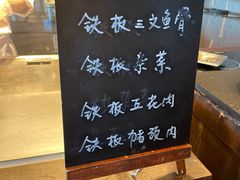 铁板三文鱼骨
铁板紫菜
铁板五花肉
铁板猪颈肉